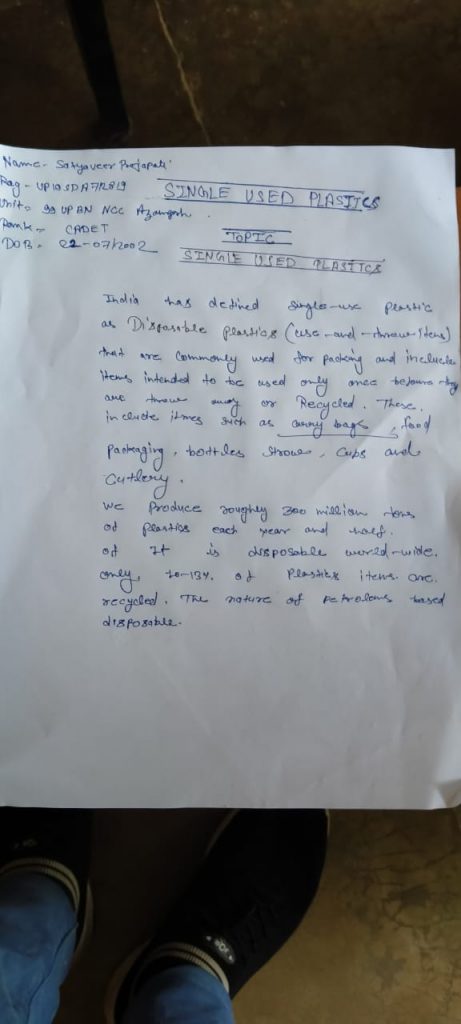 Name - Satyaveer Prajapati
SINGLE USED PLASTICS
Unit - 99 UP BN NCC Azamgarh
Rank - CADET
DOB - 02-07/2002
TOPIC
SINGLE USED PLASTICS
India has defined single-use plastic
as Disposable plastics (use-and-throw-items)
that are commonly used for packing and include
items intended to be used only once before they
are throw away or Recycled. These,
include itmes such as carry bags, food
packaging, bottles straws, cups and
cutlery.
We Produce roughly 300 million tons
of plastics each year and half.
of It is disposable world-wide.
only, 10-13%. of Plastics items are.
recycled. The nature of petroleums based
disposable.